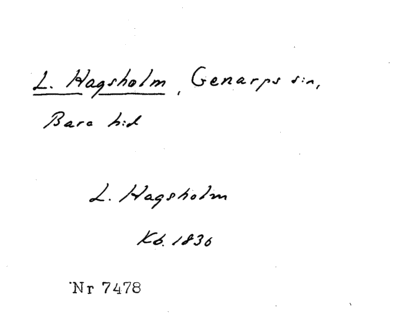 L. Hagsholm, Genarps sn,
Bara hd
L. Hagsholm
Kb. 1830
Nr 7478